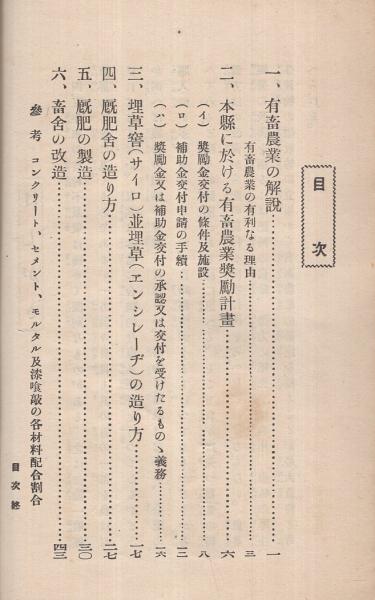 目次
一、有畜農業の解説……一
有畜農業の有利なる理由……三
二、本縣に於ける有畜農業奬勵計畫……六
(イ) 奬勵金交付の條件及施設……八
(ロ) 補助金交付申請の手續……一二
(ハ) 奬勵金又は補助金交付の承認又は交付を受けたるものゝ義務……一六
三、埋草窖(サイロ)並埋草(エンシレーヂ)の造り方……一七
四、厩肥舍の造り方……二七
五、厩肥の製造……三〇
六、畜舍の改造……四三
參考 コンクリート、セメント、モルタル及漆喰敲の各材料配合割合
目次終